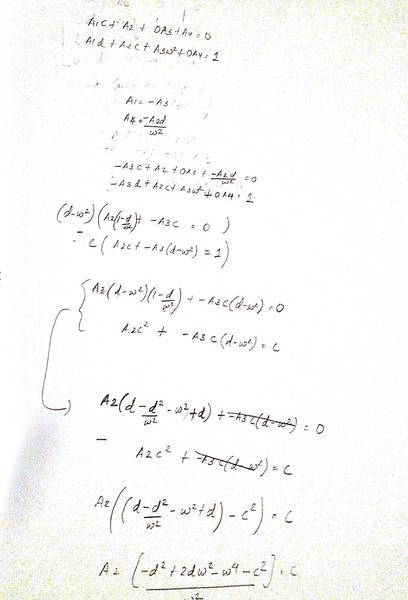 A1C + A2 + 0A3 + A4 = 0
A1d + A2C + A3w² + 0A4 = 1
A1 = -A3
A4 = -A2d/w²
-A3C + A2 + 0A3 + -A2d/w² = 0
-A3d + A2C + A3w² + 0A4 = 1
(d-w²)(A2(1-d/w²) + -A3C = 0)
- C(A2C + -A3(d-w²) = 1)
A2(d-w²)(1-d/w²) + -A3C(d-w²) = 0
A2C² + -A3C(d-w²) = C
A2(d-d²/w² - w² + d) + -A3C(d-w²) = 0
- A2C² + -A3C(d-w²) = C
A2((d-d²/w² - w² + d) - C²) = C
A2[-d² + 2dw² - w⁴ - C²/w²] = C